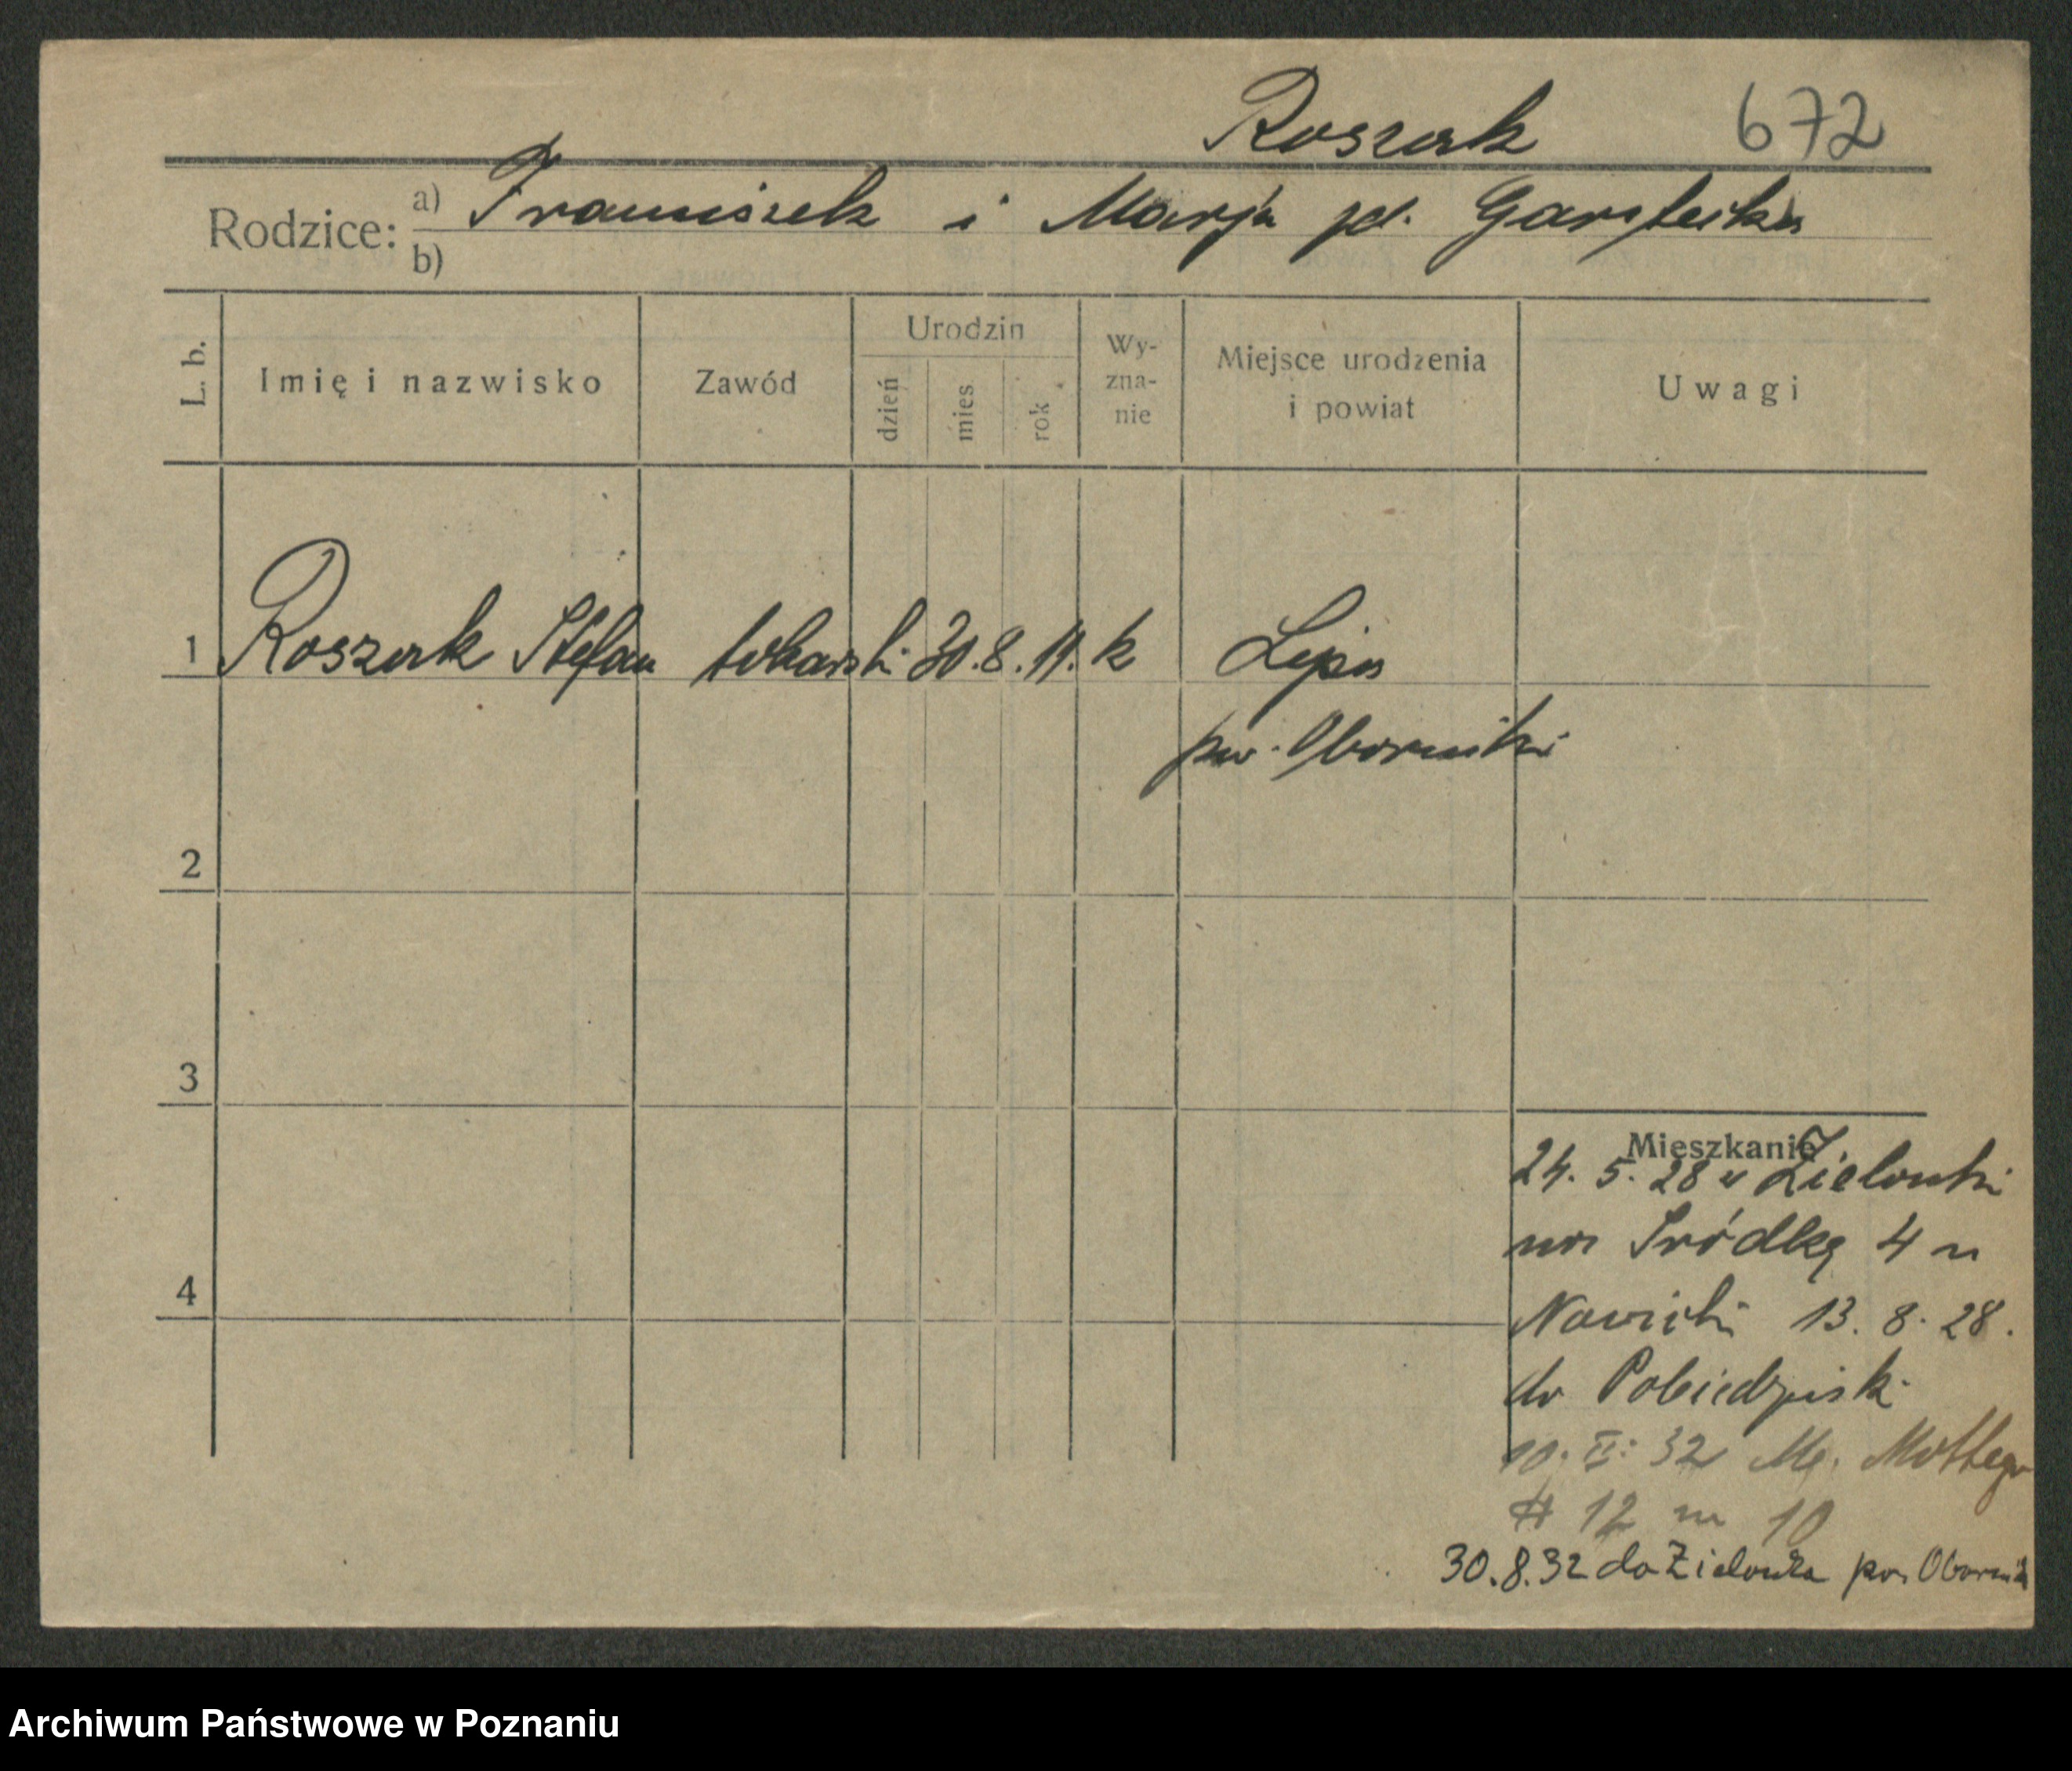 Roszak 672
Rodzice: a) Franciszek i Marja
b)
L. b.
Imię i nazwisko
Zawód
Urodzin
dzień
mies
rok
Wy-
zna-
nie
Miejsce urodzenia
i powiat
Uwagi
1 Roszak Stefan tokarski 30. 8. 11. k Lipa
pow. Oborniki
2
3
4
Mieszkanie
24. 5. 28 z Zielonki
na Śródkę 4 u
Nowicki 13. 8. 28.
do Pobiedzisk
10. II. 32 M. Mottego
# 12 m 10
30.8.32 do Zielonka pow Obornik
Archiwum Państwowe w Poznaniu